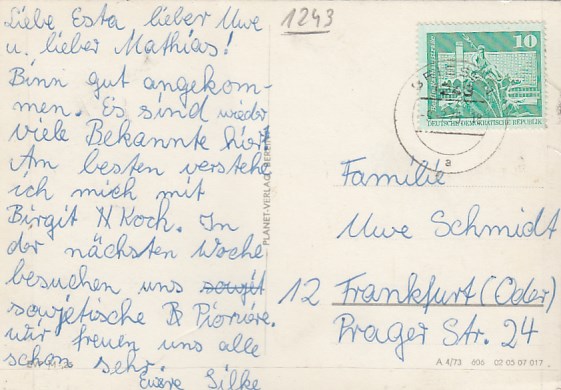 Liebe Esta lieber Uwe
u. lieber Mathias!
Binn gut angekom-
men. Es sind wieder
viele Bekannte hier.
Am besten verstehe
ich mich mit
Birgit N Koch. In
der nächsten Woche
besuchen uns sowjet
sowjetische B Pioniere.
wir freuen uns alle
schon sehr.
Euere Silke
1243
10
DEUTSCHE DEMOKRATISCHE REPUBLIK
a
PLANET-VERLAG BERLIN
Familie
Uwe Schmidt
12 Frankfurt (Oder)
Prager Str. 24
A 4/73 606 02 05 07 017